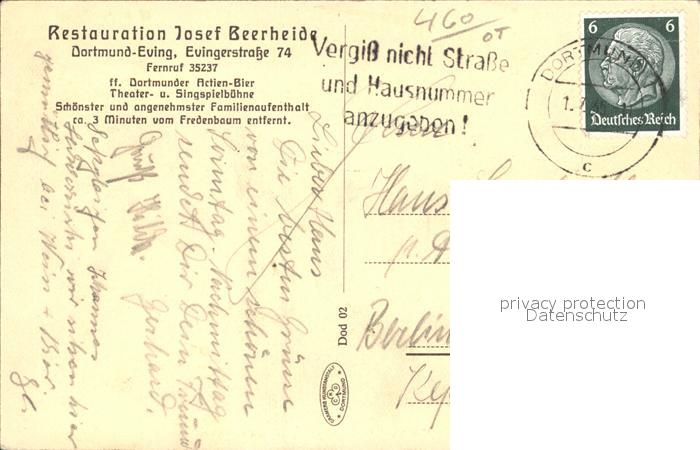 Restauration Josef Beerheide
Dortmund-Eving, Evingerstraße 74
Fernruf 35237
ff. Dortmunder Actien-Bier
Theater- u. Singspielbühne
Schönster und angenehmster Familienaufenthalt
ca. 3 Minuten vom Fredenbaum entfernt.
460
OT
Vergiß nicht Straße
und Hausnummer
anzugeben!
6 6
Deutsches Reich
DORTMUND
c
Lieber Hans
Die besten Grüße
von einem schönen
Sonntag Nachmittag
sendet Dir Dein Freund
Gerhard.
Gruß Hilde
wir sitzen hier
gemütlich bei Wein + Bier.
Hans
Berlin
Dod 02
CRAMERS KUNSTANSTALT
DORTMUND
privacy protection
Datenschutz